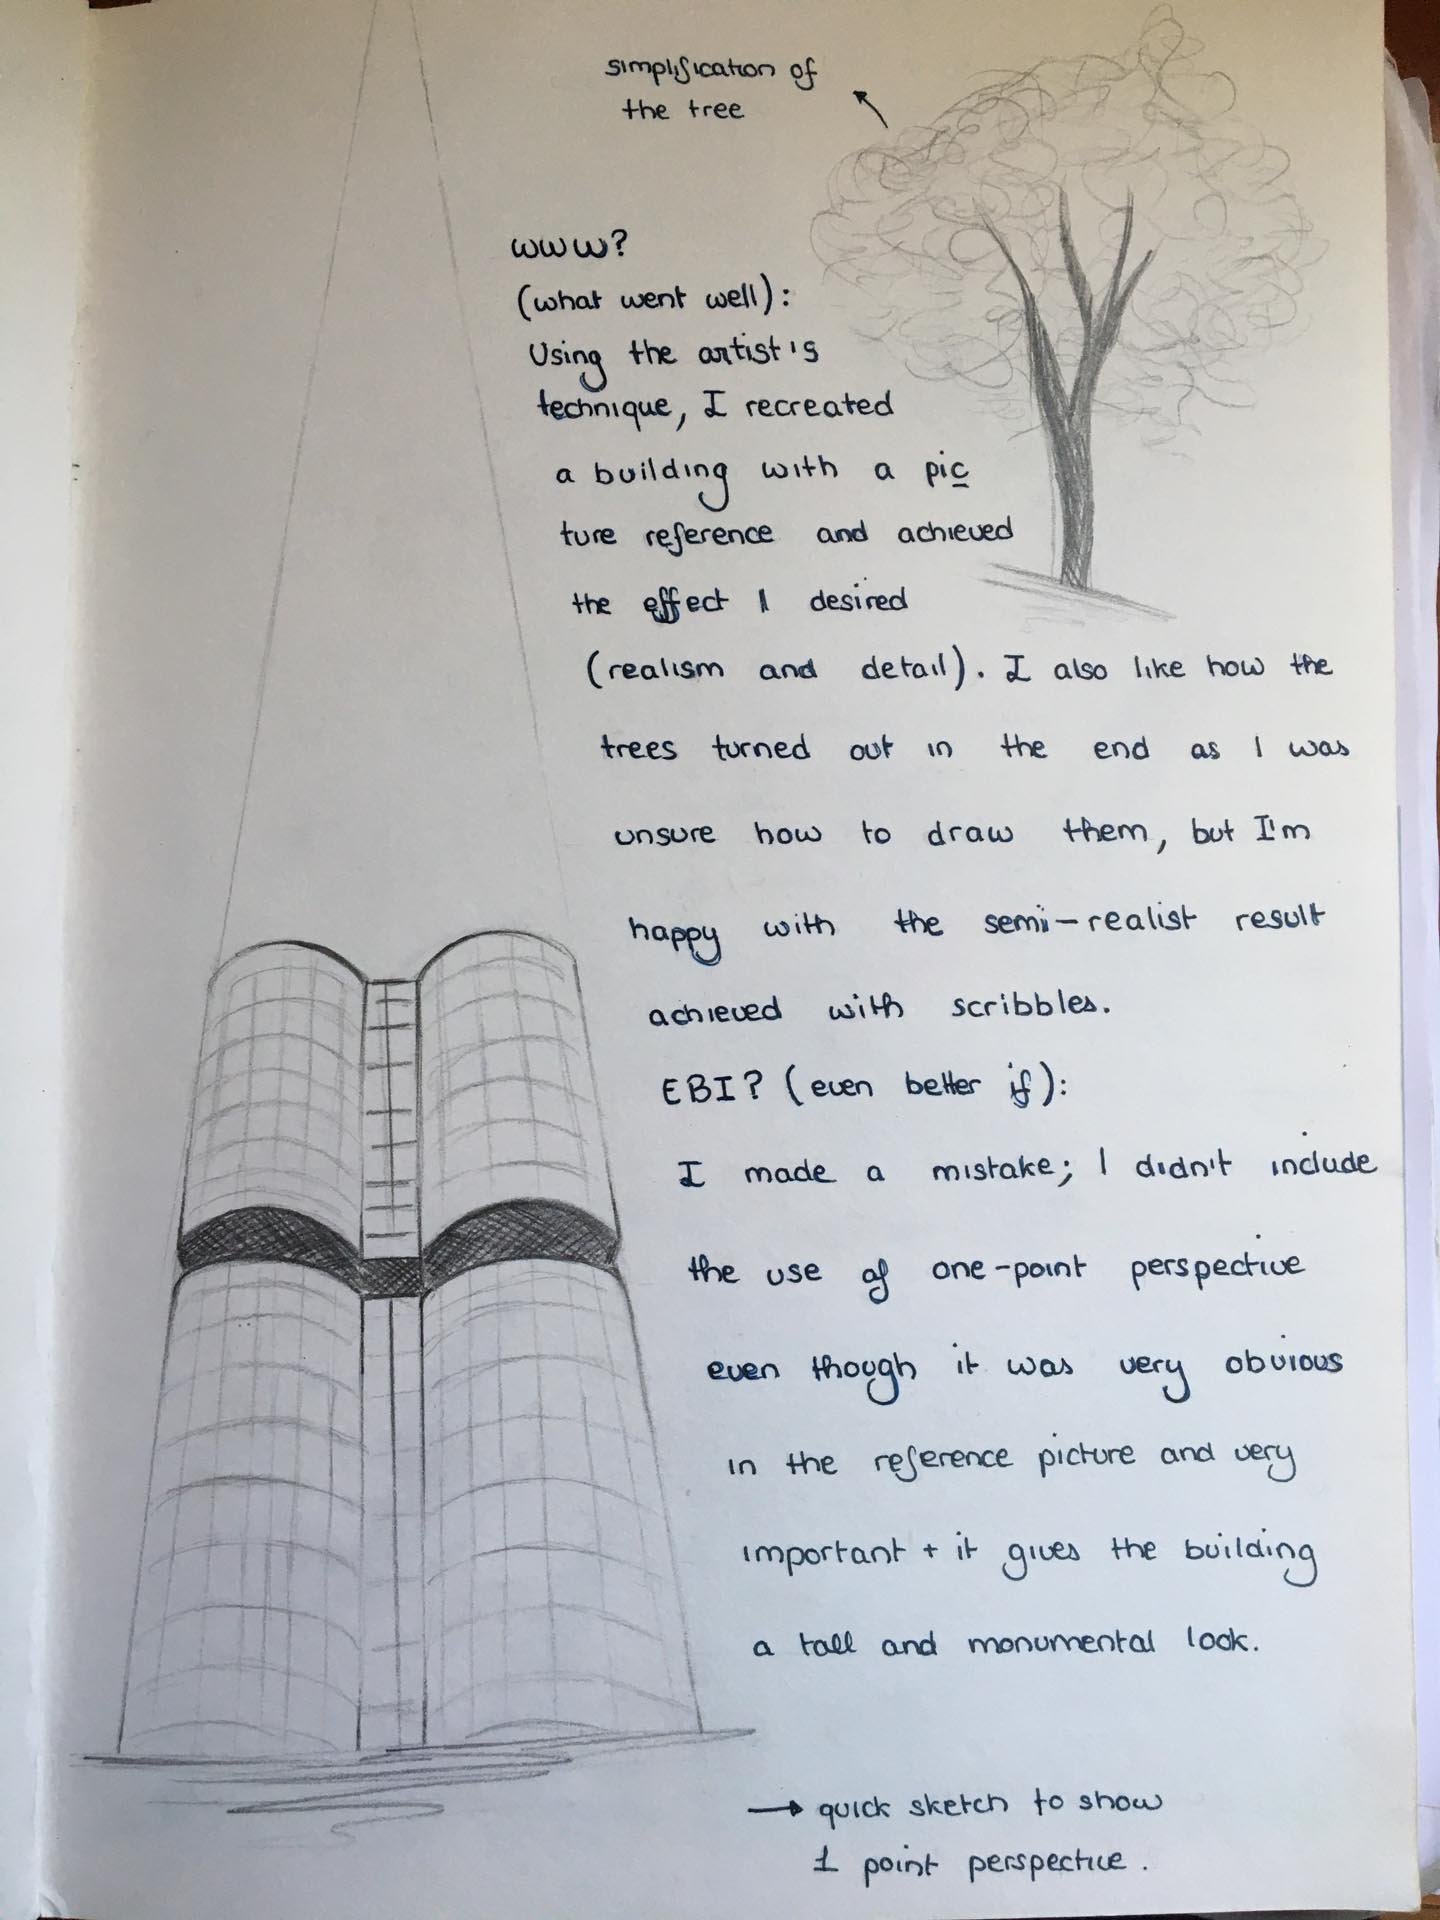 simplification of
the tree
WWW?
(what went well):
Using the artist's
technique, I recreated
a building with a pic
ture reference and achieved
the effect I desired
(realism and detail). I also like how the
trees turned out in the end as I was
unsure how to draw them, but I'm
happy with the semi-realist result
achieved with scribbles.
EBI? (even better if):
I made a mistake; I didn't include
the use of one-point perspective
even though it was very obvious
in the reference picture and very
important + it gives the building
a tall and monumental look.
→ quick sketch to show
1 point perspective.